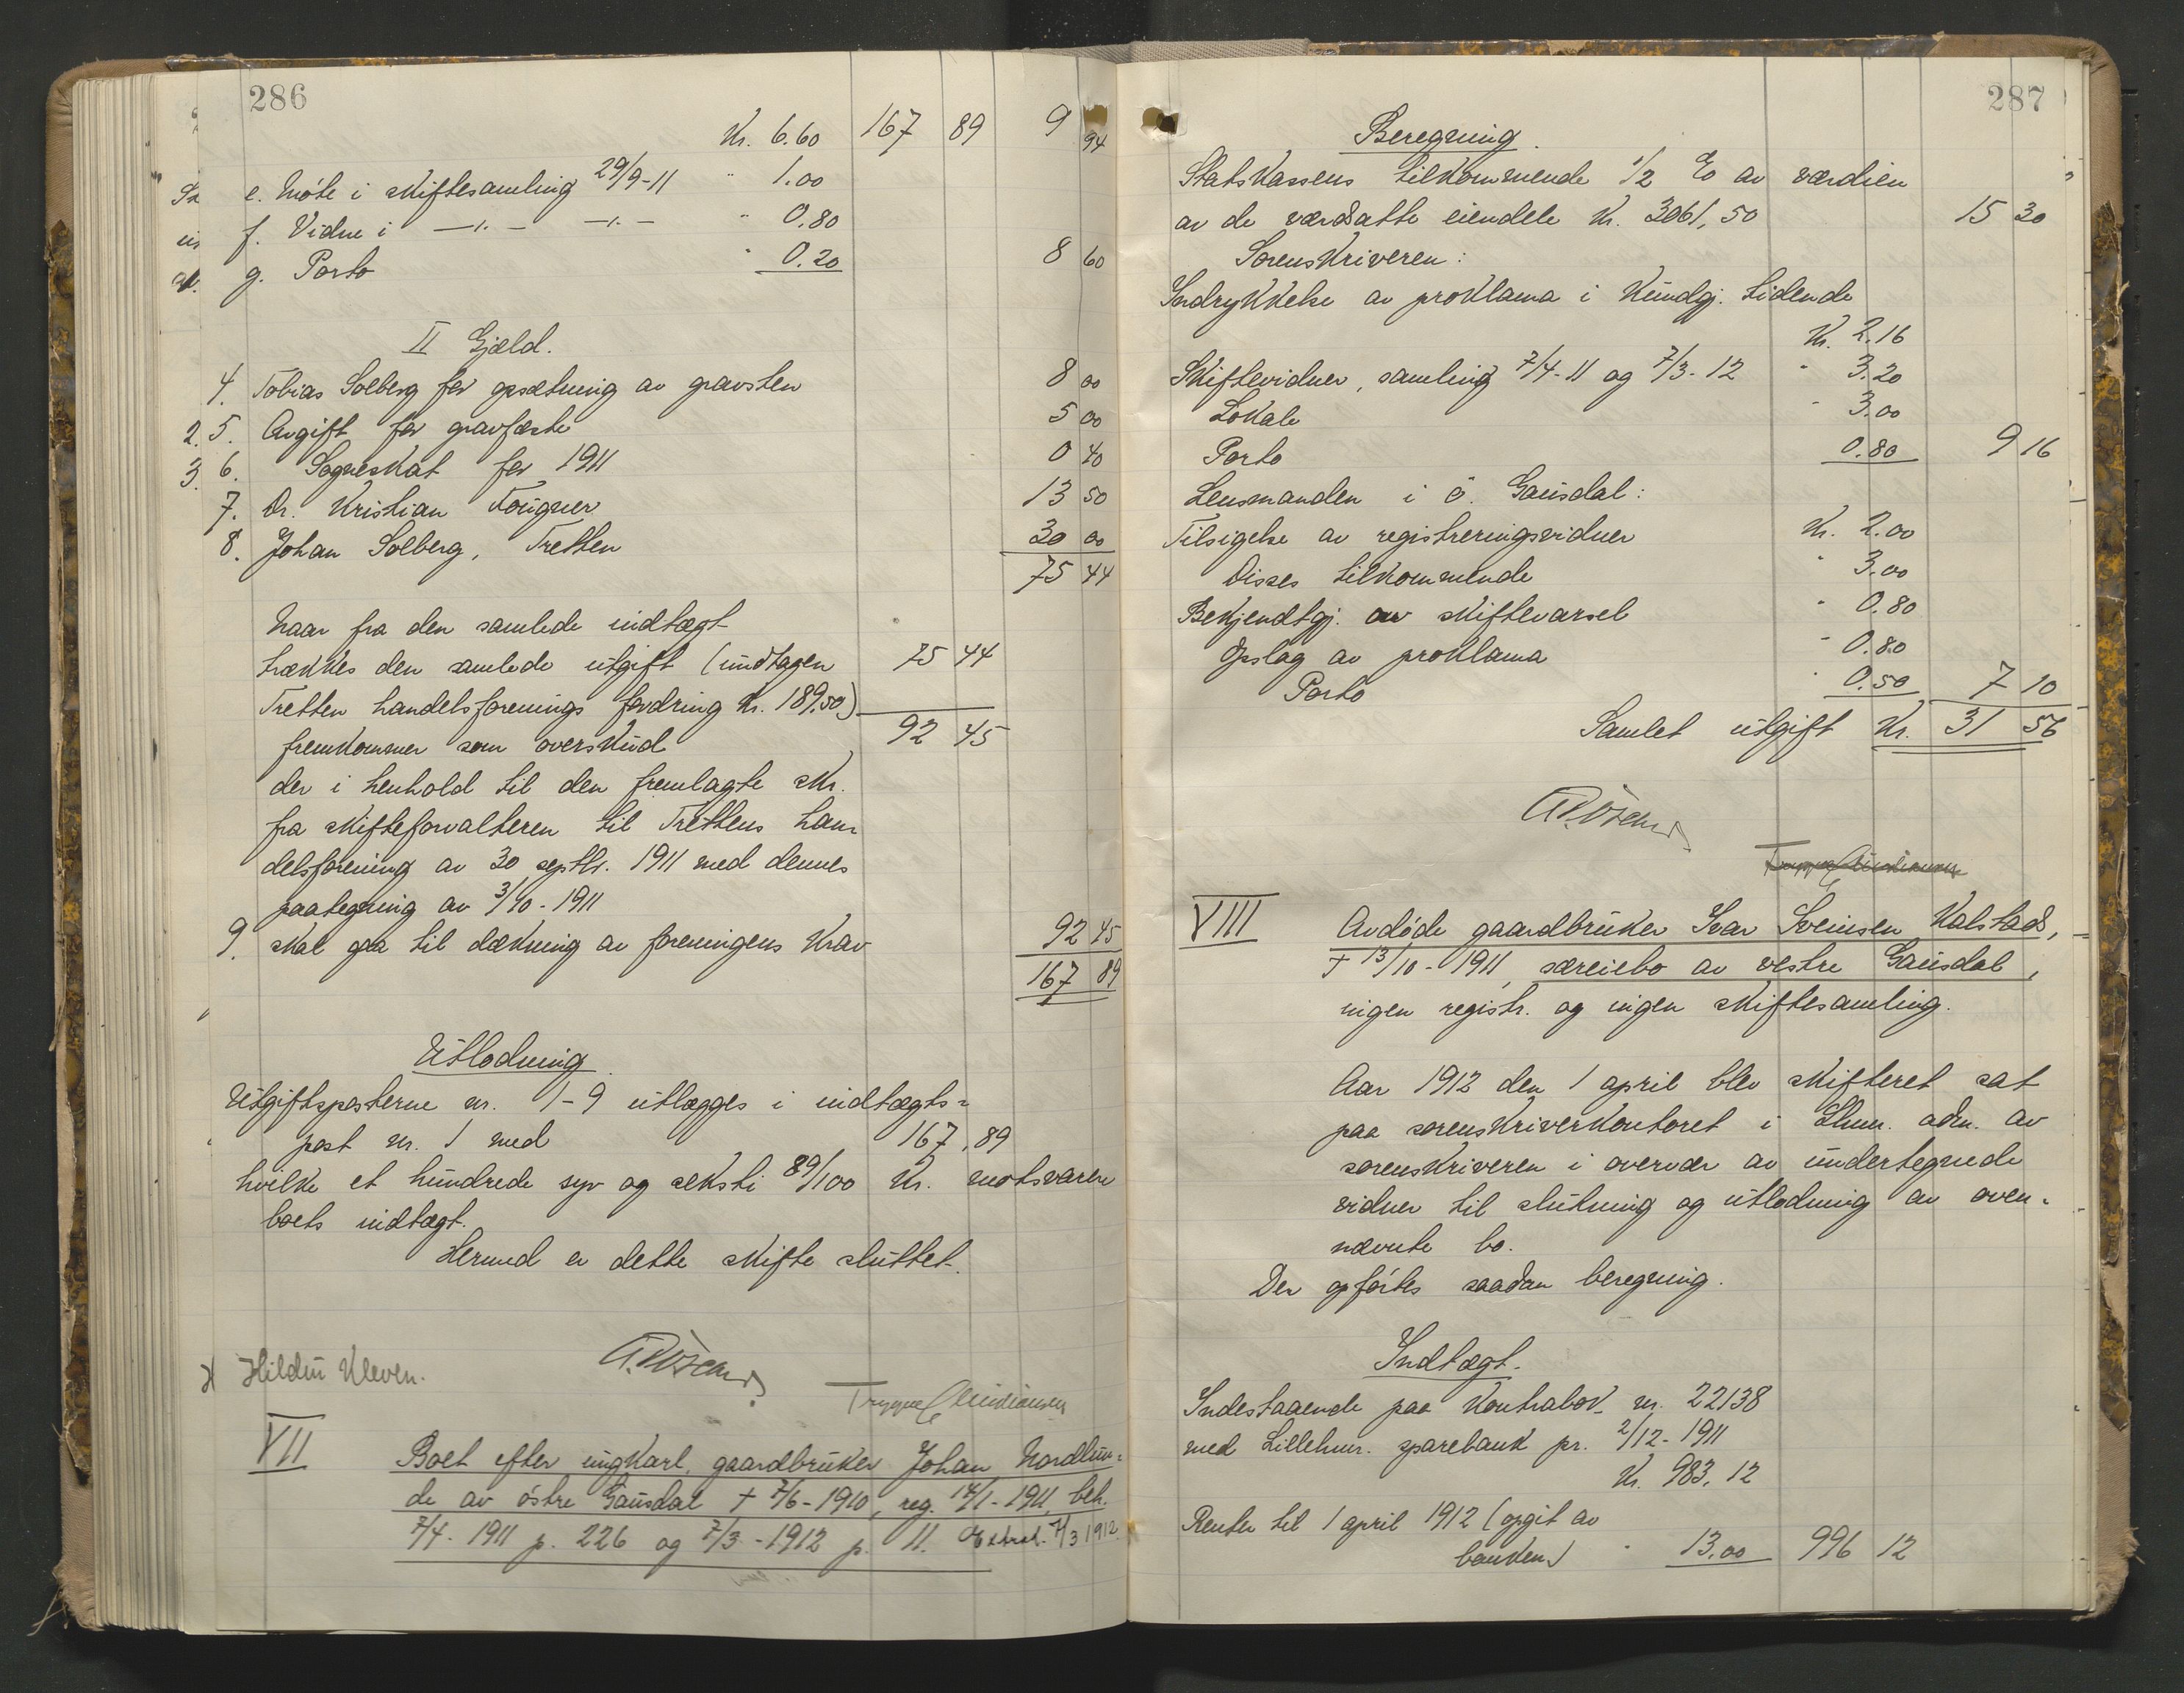 286
Kr. 6.60 167 89 9 94
e. Møte i skiftesamling 29/9-11 " 1.00
f. Vidne i -"- -"- " 0.80
g. Porto " 0.20 8 60
II Gjæld.
4. Tobias Solberg for opsætning av gravsten 8 00
2. 5. Avgift for gravfæste 5 00
3. 6. Sogneskat for 1911 0 40
7. Dr. Kristian Fougner 13 50
8. Johan Solberg, Tretten 30 00
75 44
Naar fra den samlede indtægt
trækkes den samlede utgift (undtagen 75 44
Tretten handelsforenings fordring kr. 189.50)
fremkommer som overskud 92 45
der i henhold til den fremlagte skr.
fra skifteforvalteren til Trettens han-
delsforening av 30 septbr. 1911 med dennes
paategning av 3/10-1911
9. skal gaa til dækning av foreningens krav 92 45
167 89
Utlodning
Utgiftsposterne nr. 1-9 utlægges i indtægts=
post nr. 1 med 167,89
hvilke et hundrede syv og seksti 89/100 kr. motsvarer
boets indtægt.
Hermed er dette skifte sluttet.
Hildur Kleven.
VII Boet efter ungkarl, gaardbruker Johan Nordlun=
de av østre Gausdal + 7/6-1910, reg. 14/1-1911, beh.
7/4-1911 p. 226 og 7/3-1912 p. 11. Ekstrah. 7/3 1912.
287
Beregning.
Statskassens tilkommende 1/2 % av værdien
av de værdsatte eiendele kr. 3061,50 15 30
Sorenskriveren:
Indrykkelse av proklama i Kundgj. tidende
Kr. 2.16
Skiftevidner, samling 7/4-11 og 7/3-12 " 3.20
Lokale " 3.00
Porto 0.80 9 16
Lensmanden i ö. Gausdal:
Tilsigelse av registreringsvidner Kr. 2.00
Disses tilkommende " 3.00
Bekjendtgj. av skiftevarsel " 0.80
Opslag av proklama " 0.80
Porto " 0.50 7 10
Samlet utgift Kr. 31 56
VIII Avdøde gaardbruker Ivar Sveinsen Kalstad,
+ 13/10-1911, særeiebo av vestre Gausdal,
ingen registr. og ingen skiftesamling.
Aar 1912 den 1 april blev skifteret sat
paa sorenskriverkontoret i Lhmr. adm. av
sorenskriveren i overvær av undertegnede
vidner til slutning og utlodning av oven-
nævnte bo.
Der opførtes saadan beregning.
Indtægt.
Indestaaende paa kontrabok nr. 22138
med Lillehmr. sparebank pr. 2/12-1911
Kr. 983,12
Renter til 1 april 1912 (opgit av
banken) " 13.00 996 12